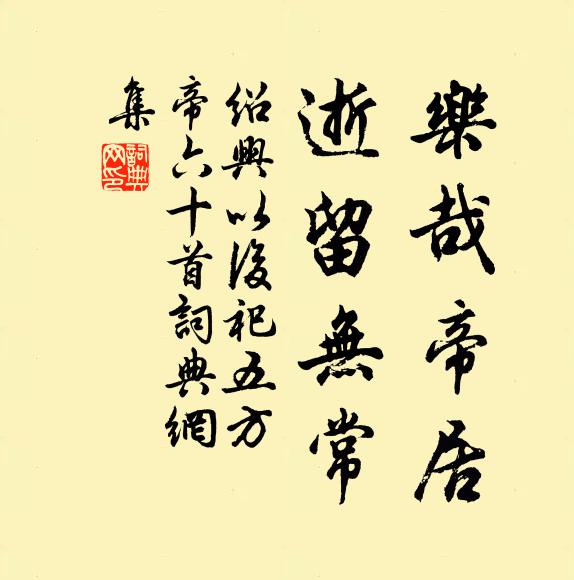 樂哉帝居
逝留無常
紹興以後祀五方
帝六十首詞典網
集
詞典
网印